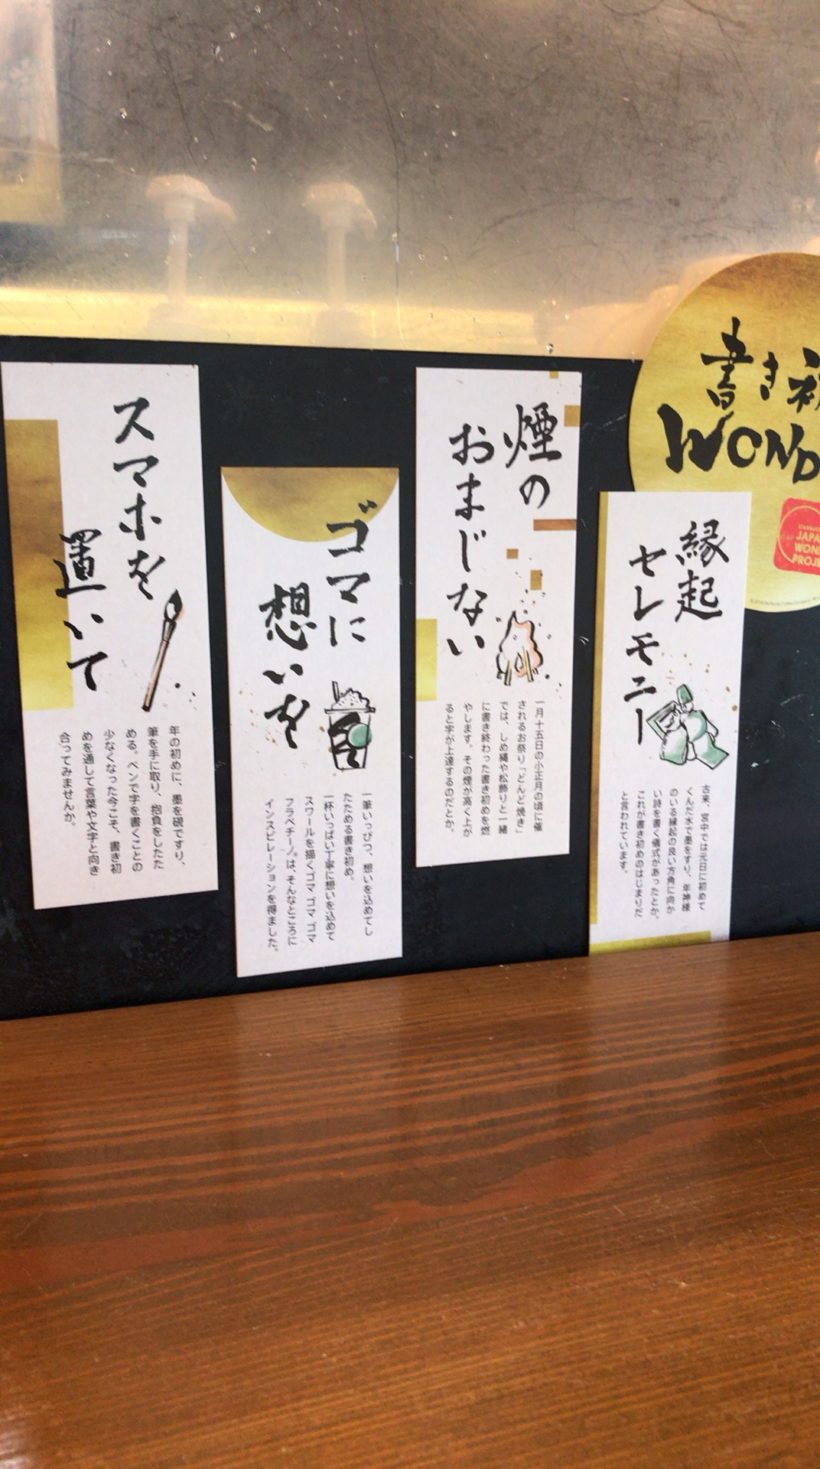 書き初
WOND
JAPA
WON
PROJE
縁起
セレモニー
古来、宮中では元日に初めて
くんだ水で墨をすり、年神様
のいる縁起の良い方角に向か
い詩を書く儀式があったとか。
これが書き初めのはじまりだ
と言われています。
煙の
おまじない
一月十五日の小正月の頃に催
されるお祭り「どんど焼き」
では、しめ縄や松飾りと一緒
に書き終わった書き初めを燃
やします。その煙が高く上が
ると字が上達するのだとか。
ゴマに
想いを
一筆いっぴつ、想いを込めてし
たためる書き初め。
一杯いっぱい丁寧に想いを込めて
スワールを描くゴマ ゴマ ゴマ
フラペチーノ®は、そんなところに
インスピレーションを得ました。
スマホを
置いて
年の初めに、墨を硯ですり、
筆を手に取り、抱負をしたた
める。ペンで字を書くことの
少なくなった今こそ、書き初
めを通して言葉や文字と向き
合ってみませんか。